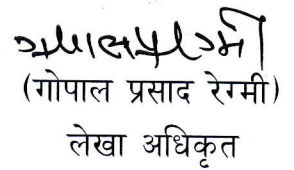 (गोपाल प्रसाद रेग्मी)
लेखा अधिकृत